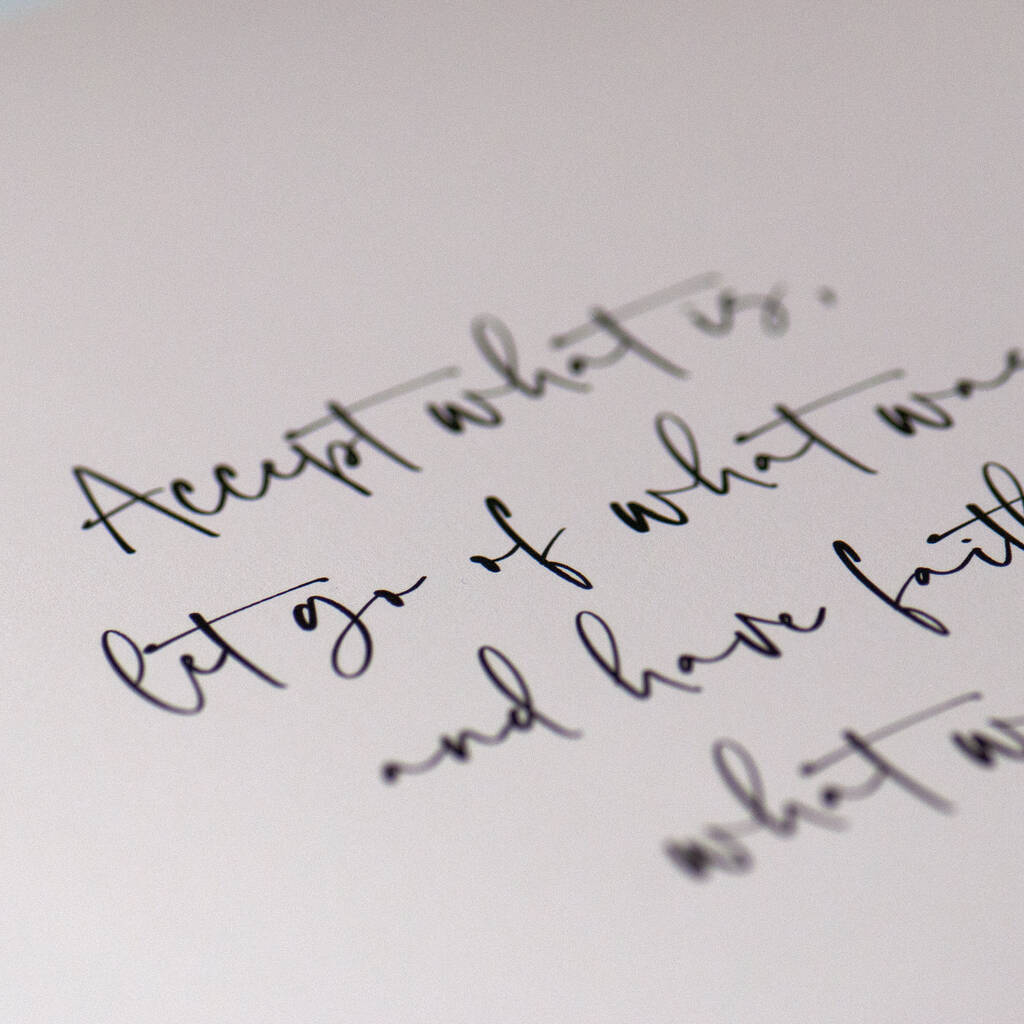 Accept what is.
let go of what was
and have faith
what w